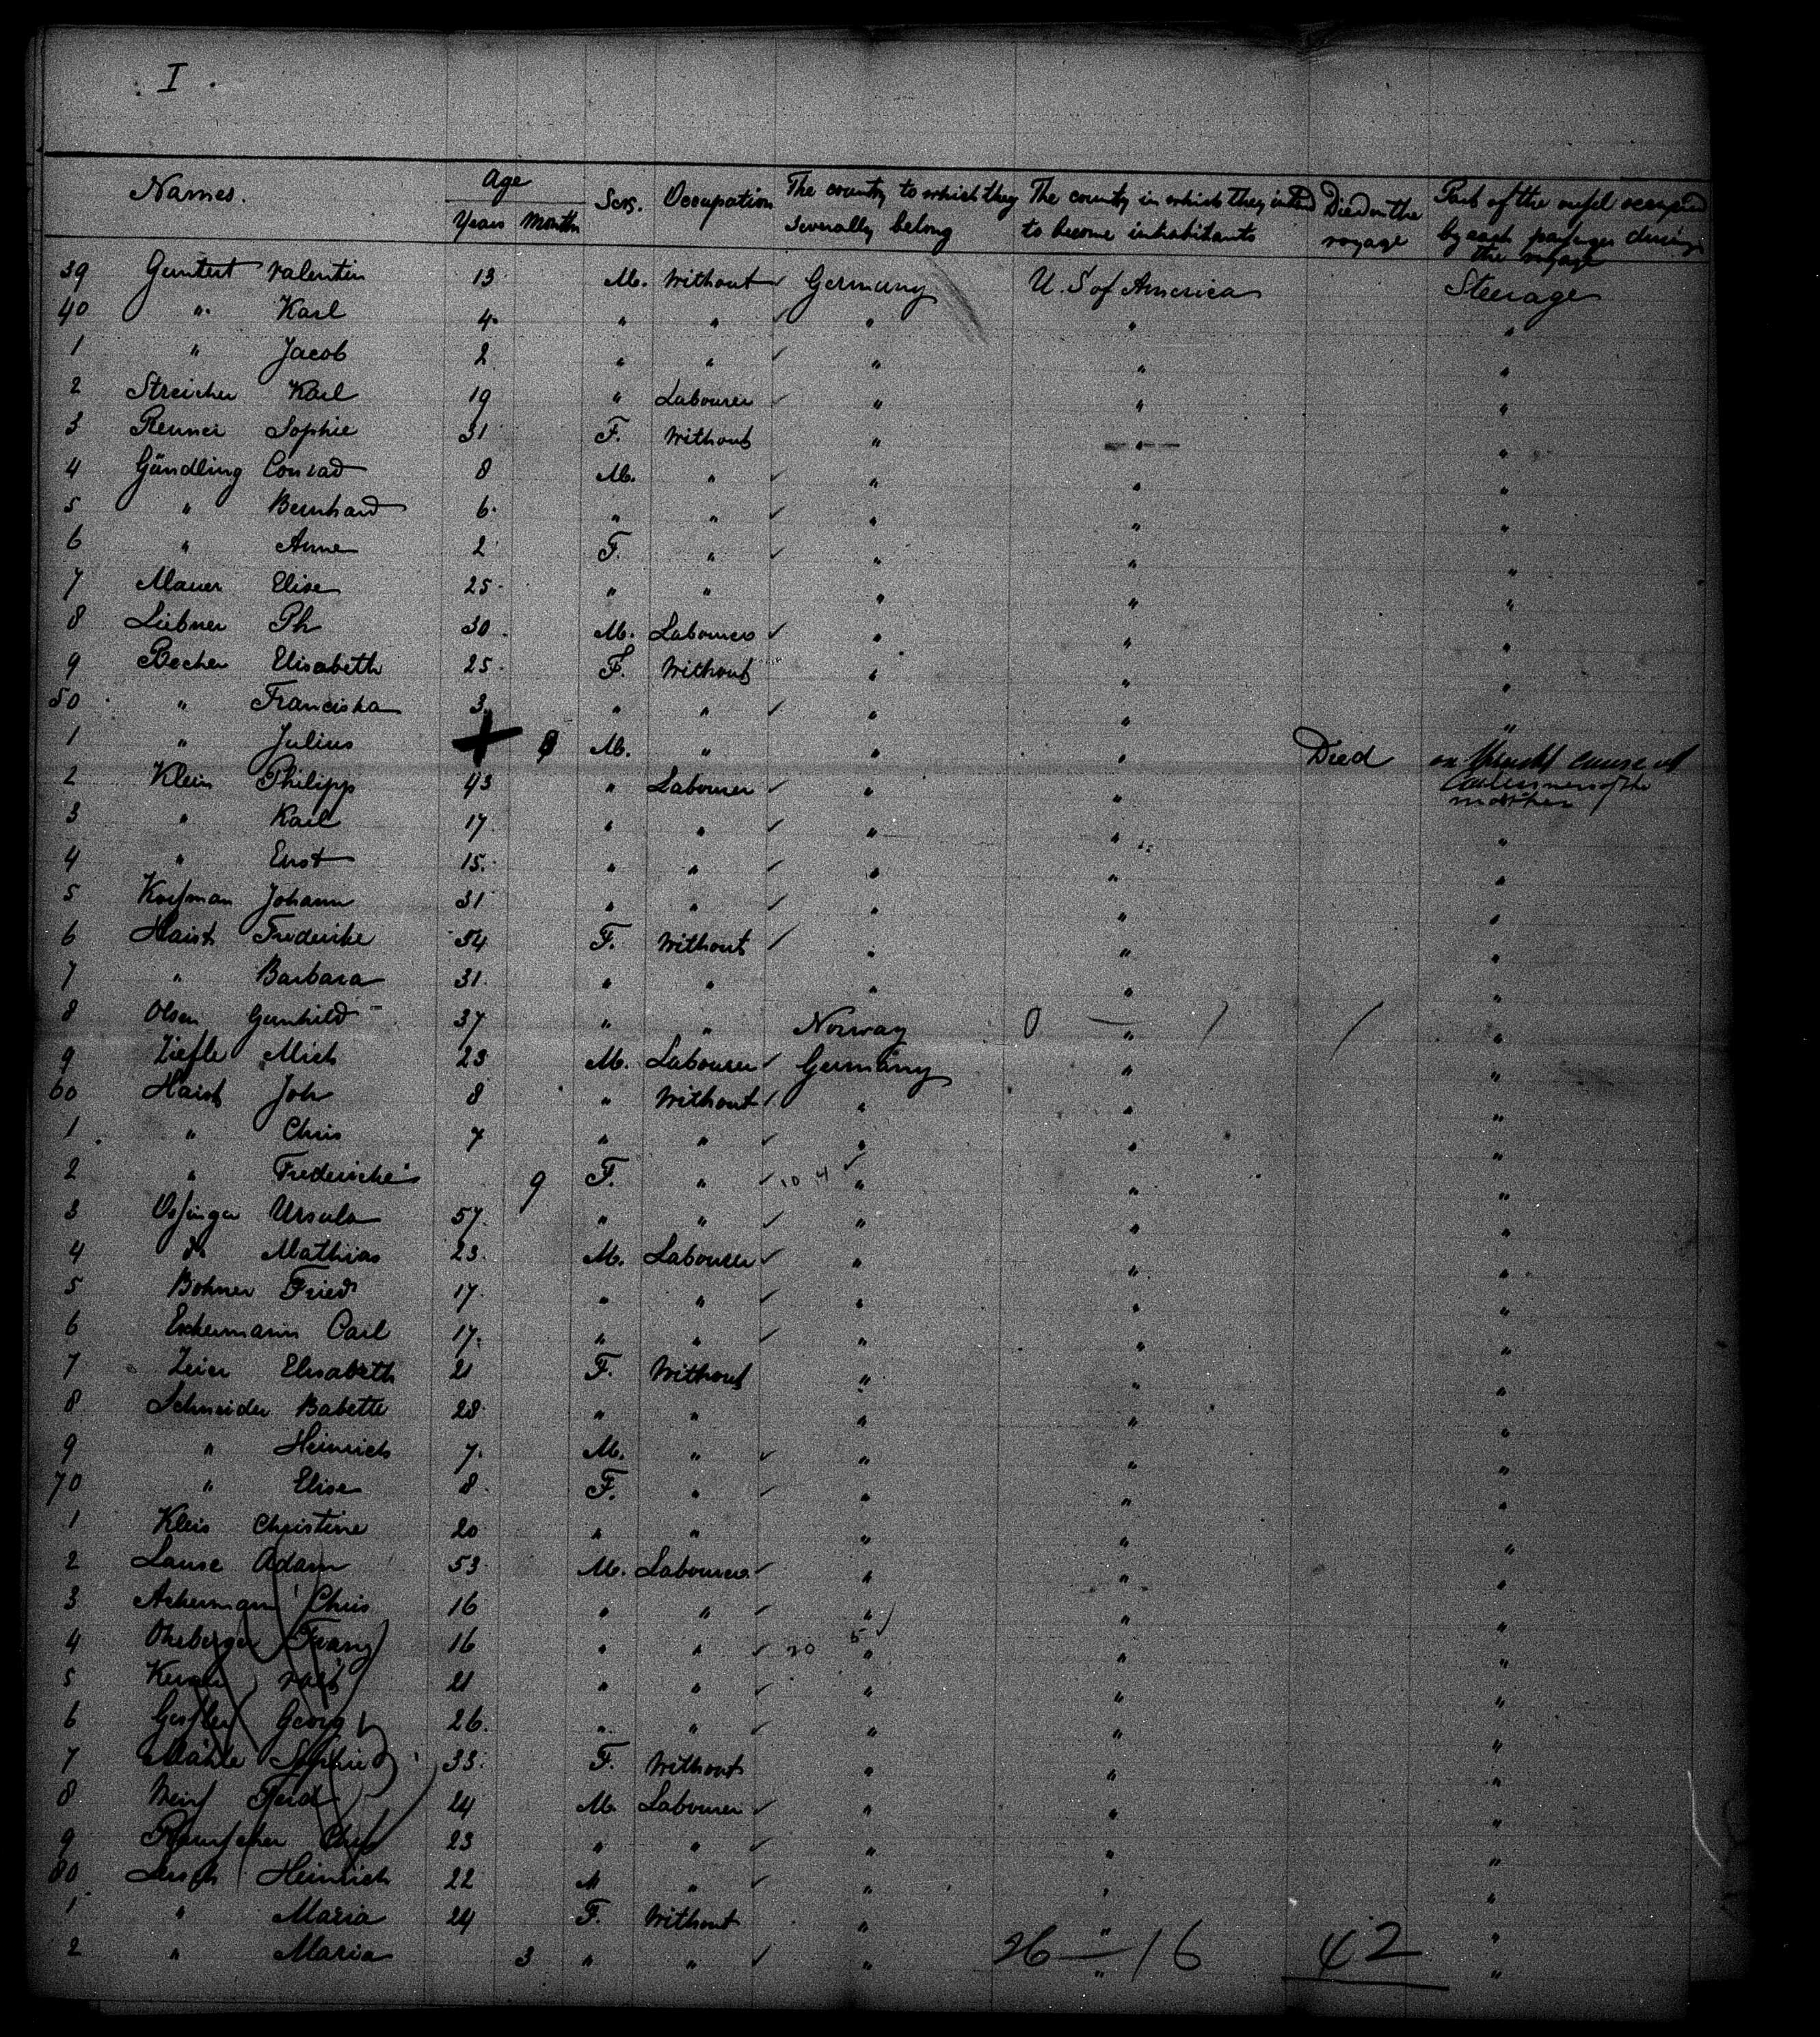 I.
Names. Age Sex. Occupation The country to which they The country in which they intend Died on the Part of the vessel occupied
Years Months severally belong to become inhabitants voyage by each passenger during
the voyage
39 Guntert Valentin 13 M. Without Germany U. S of America Steerage
40 " Karl 4 " " " " "
1 " Jacob 2 " " " " "
2 Streicher Karl 19 " Labourer " " "
3 Renner Sophie 31 F. Without " " "
4 Gündling Conrad 8 M. " " " "
5 " Bernhard 6 " " " " "
6 " Anne 2 F. " " " "
7 Mauer Elise 25 " " " " "
8 Liebner Ph 30 M. Labourer " " "
9 Becher Elisabeth 25 F. Without " " "
50 " Franciska 3 " " " " "
1 " Julius M. " " " Died cause of
2 Klein Philipp 43 " Labourer " " of the
mother
3 " Karl 17 " " " " "
4 " Ernst 15 " " " " "
5 Korfman Johann 31 " " " " "
6 Haist Frederike 54 F. Without " " "
7 " Barbara 31 " " " " "
8 Olsen Gunhild 37 " " Norway 0 — " "
9 Ziefle Mich 23 M. Labourer Germany " "
60 Haist Joh 8 " Without " " "
1 " Chris 7 " " " " "
2 " Frederike 9 F. " 10 4 " " "
3 Ursula 57 " " " " "
4 " Mathias 23 M. Labourer " " "
5 Bohner Fried 17 " " " " "
6 Eschermann Carl 17 " " " " "
7 Zeier Elisabeth 21 F. Without " " "
8 Schneider Babette 28 " " " " "
9 " Heinrich 7 M. " " " "
70 " Elise 8 F. " " " "
1 Kleis Christine 20 " " " " "
2 Lause Adam 53 M. Labourer " " "
3 Ackermann Chris 16 " " " " "
4 Franz 16 " " 20 5 " " "
5 21 " " " " "
6 Georg 26 " " " " "
7 Mähle Sophie 33 F. Without " " "
8 Ferd 24 M. Labourer " " "
9 23 " " " " "
80 Lesch Heinrich 22 M " " " "
1 " Maria 24 F. Without " " "
2 " Maria 3 " " " " "
26 — 16 42